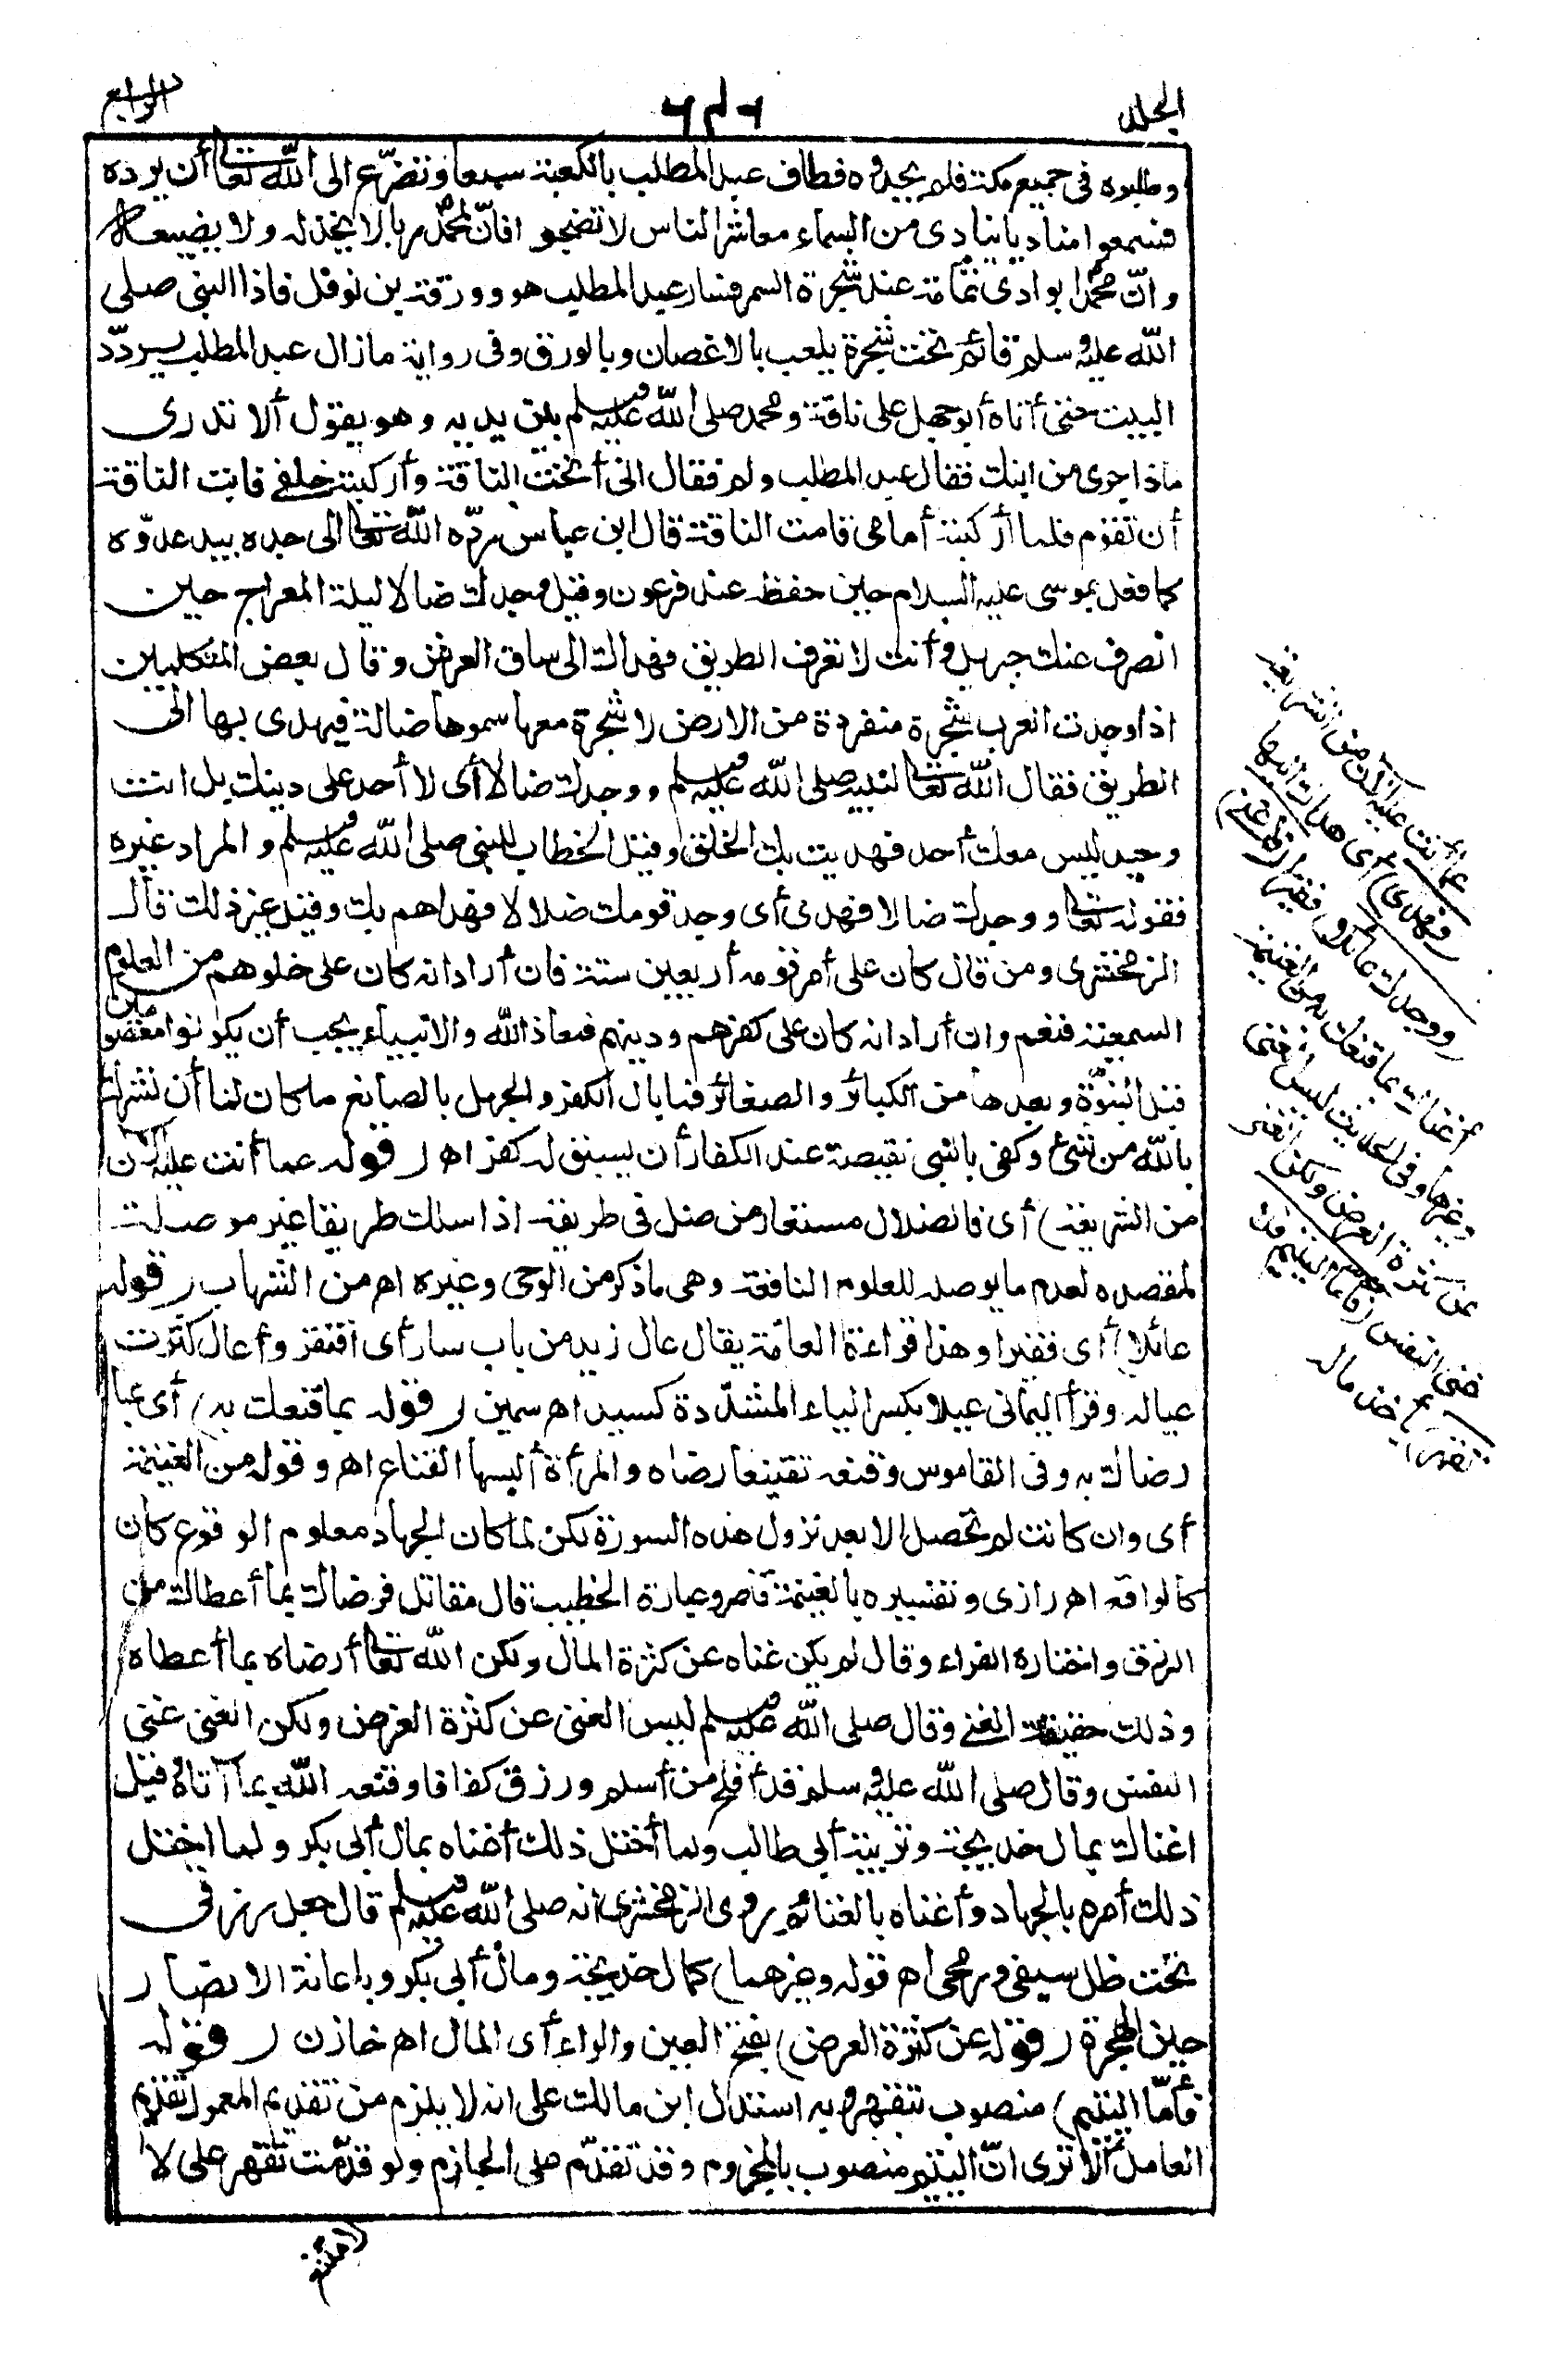 الجلد
٦٤٦
الرابع
وطلبوه فى جميع مكة فلم يجدوه فطاف عبد المطلب بالكعبة سبعا وتضرّع الى الله تعالى أن يرده
فسمعوا مناديا ينادى من السماء معاشر الناس لا تضجوا فانّ لمحمد ربا لا يخذله ولا يضيعه
وانّ محمدا بوادى تهامة عند شجرة السمر فسار عبد المطلب هو وورقة بن نوفل فاذا النبى صلى
الله عليه وسلم قائم تحت شجرة يلعب بالاغصان وبالورق وفى رواية مازال عبد المطلب يردّد
البيت حتى أتاه أبو جهل على ناقة ومحمد صلى الله عليه وسلم بين يديه وهو يقول ألا تدرى
ماذا جرى من ابنك فقال عبد المطلب ولم فقال انى أنخت الناقة وأركبته خلفى فابت الناقة
أن تقوم فلما أركبته أمامى قامت الناقة قال ابن عباس ردّه الله تعالى الى جده بيد عدوّه
كما فعل بموسى عليه السلام حين حفظه عند فرعون وقيل وجدك ضالا ليلة المعراج حين
انصرف عنك جبريل وأنت لا تعرف الطريق فهداك الى ساق العرش وقال بعض المتكلمين
اذا وجدت العرب شجرة منفردة من الارض لا شجرة معها سموها ضالة فيهدى بها الى
الطريق فقال الله تعالى لنبيه صلى الله عليه وسلم ووجدك ضالا أى لا أحد على دينك بل انت
وحيد ليس معك أحد فهديت بك الخلق وقيل الخطاب للنبى صلى الله عليه وسلم والمراد غيره
فقوله تعالى ووجدك ضالا فهدى أى وجد قومك ضلالا فهداهم بك وقيل غير ذلك قال
الزمخشرى ومن قال كان على أمر قومه أربعين سنة فان أراد انه كان على خلوهم من العلوم
السمعية فنعم وان أراد انه كان على كفرهم ودينهم فمعاذ الله والانبياء يجب أن يكونوا معصومين
قبل النبوّة وبعدها من الكبائر والصغائر فما بال الكفر والجهل بالصانع ما كان لنا أن نشرك
بالله من شئ وكفى بالنبى نقيصة عند الكفار أن يسبق له كفر اهـ (قوله عما أنت عليه الآن
من الشريعة) أى فالضلال مستعار من ضل فى طريقه اذا سلك طريقا غير موصلة
لمقصده لعدم ما يوصله للعلوم النافعة وهى ما ذكر من الوحى وغيره اهـ من الشهاب (قوله
عائلا) أى فقيرا وهذا قراءة العامّة يقال عال زيد من باب سار أى افتقر وأعال كثرت
عياله وقرأ اليمانى عيلا بكسر الياء المشدّدة كسيد اهـ سمين (قوله بما قنعك به) أى بما
رضاك به وفى القاموس وقنعه تقنيعا رضاه والمرأة ألبسها القناع اهـ وقوله من الغنيمة
أى وان كانت لم تحصل الا بعد نزول هذه السورة لكن لما كان الجهاد معلوم الوقوع كان
كالواقع اهـ رازى وتفسيره بالغنيمة قاصر وعبارة الخطيب قال مقاتل فرضاك بما أعطاك من
الرزق واختاره الفراء وقال لم يكن غناه عن كثرة المال ولكن الله تعالى أرضاه بما أعطاه
وذلك حقيقة الغنى وقال صلى الله عليه وسلم ليس الغنى عن كثرة العرض ولكن الغنى غنى
النفس وقال صلى الله عليه وسلم قد أفلح من أسلم ورزق كفافا وقنعه الله بما آتاه وقيل
اغناك بمال خديجة وتربية أبى طالب ولما أختل ذلك أغناه بمال أبى بكر ولما اختل
ذلك أمره بالجهاد وأغناه بالغنائم روى الزمخشرى انه صلى الله عليه وسلم قال جعل رزقى
تحت ظل سيفى ورمحى اهـ قوله وغيرهما) كمال خديجة ومال أبى بكر وباعانة الانصار
حين الهجرة (قوله عن كثرة العرض) بفتح العين والراء أى المال اهـ خازن (قوله
فأمّا اليتيم) منصوب بتقهر وبه استدل ابن مالك على انه لا يلزم من تقديم المعمول تقديم
العامل ألا ترى انّ اليتيم منصوب بالمجزوم وقد تقدّم على الجازم ولو قدّمت تقهر على لا
عما أنت عليه الآن من الشريعة
(فهدى) أى هداك اليها
(ووجدك عائلا) فقيرا (فأغنى)
أغناك بما قنعك به من الغنيمة
وغيرها وفى الحديث ليس الغنى
عن كثرة العرض ولكن الغنى
غنى النفس (فأما اليتيم فلا
تقهر) بأخذ ماله